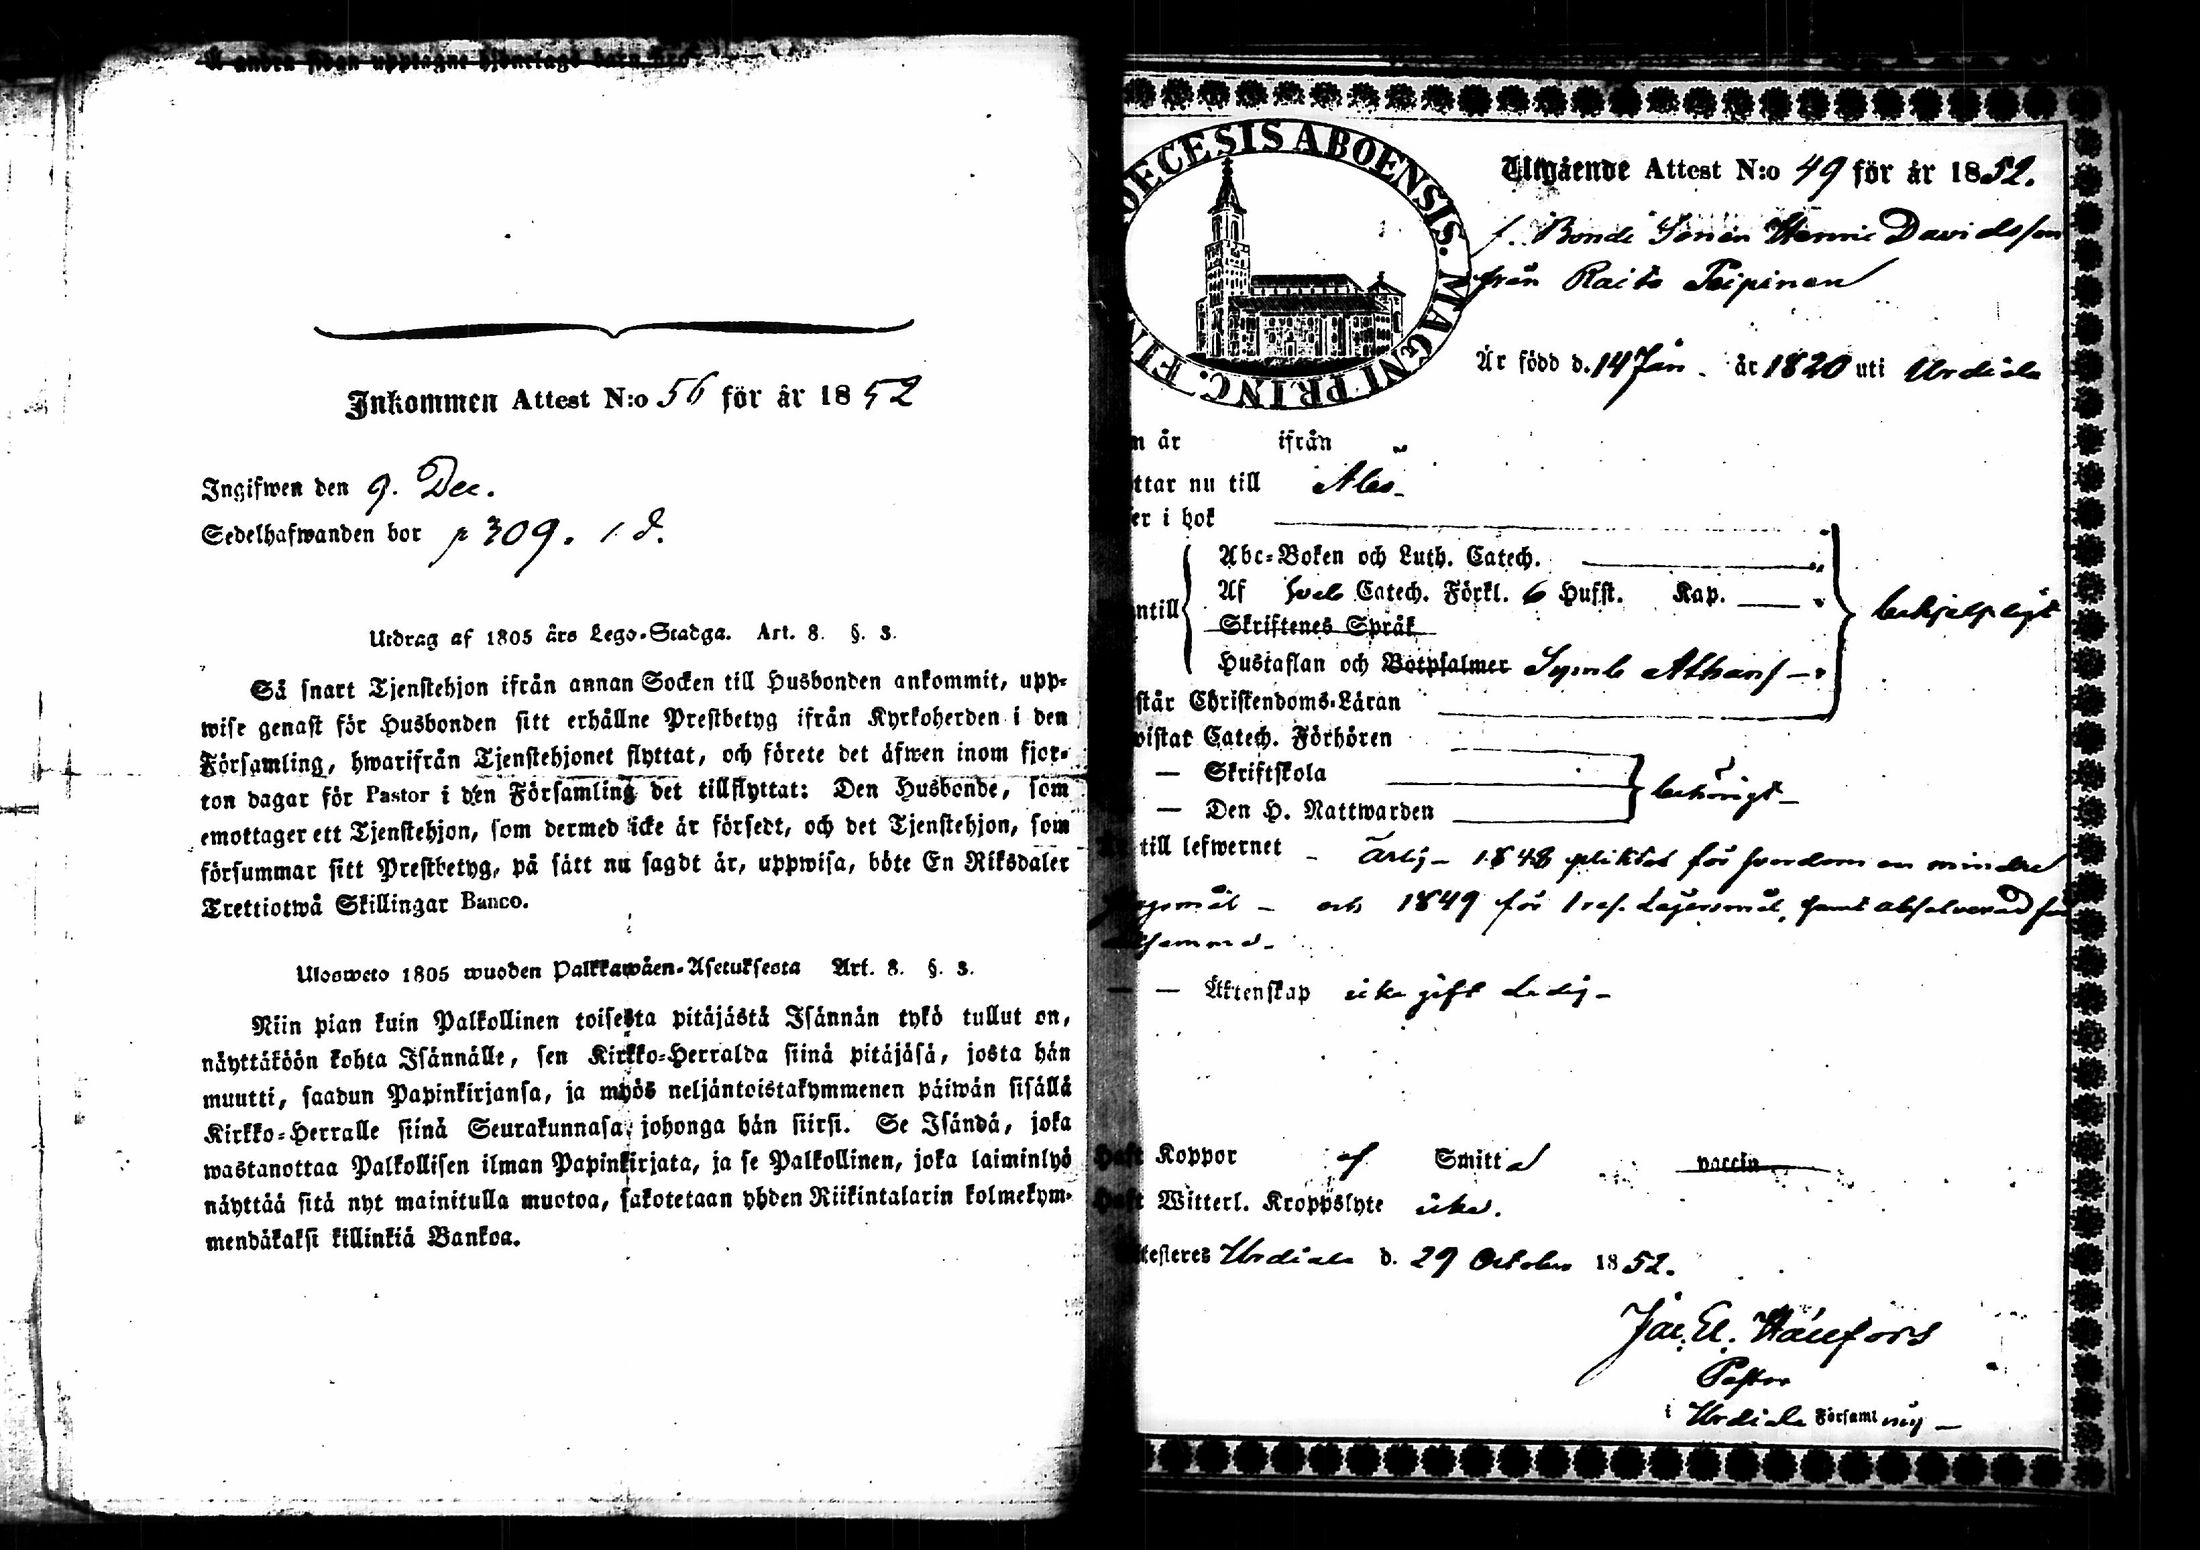 Å andra sidan upptagne hjonelags barn äro
Inkommen Attest N:o 56 för år 1852
Ingifwen den 9. Dec.
Sedelhafwanden bor p 309. 1 d.
Utdrag af 1805 års Lego-Stadga. Art. 8. §. 3.
Så snart Tjenstehjon ifrån annan Socken till Husbonden ankommit, upp-
wise genast för Husbonden sitt erhållne Prestbetyg ifrån Kyrkoherden i den
Församling, hwarifrån Tjenstehjonet flyttat, och förete det äfwen inom fjor-
ton dagar för Pastor i den Församling det tillflyttat: Den Husbonde, som
emottager ett Tjenstehjon, som dermed icke är försedt, och det Tjenstehjon, som
försummar sitt Prestbetyg, på sätt nu sagdt är, uppwisa, böte En Riksdaler
Trettiotwå Skillingar Banco.
Ulosweto 1805 wuoden Palkkawäen-Asetuksesta Art. 8. §. 3.
Niin pian kuin Palkollinen toisesta pitäjästä Isännän tykö tullut on,
näyttäköön kohta Isännälle, sen Kirkko-Herralda siinä pitäjäsä, josta hän
muutti, saadun Papinkirjansa, ja myös neljäntoistakymmenen päiwän sisällä
Kirkko-Herralle siinä Seurakunnasa, johonga hän siirsi. Se Isändä, joka
wastanottaa Palkollisen ilman Papinkirjata, ja se Palkollinen, joka laiminlyö
näyttää sitä nyt mainitulla muotoa, sakotetaan yhden Riikintalarin kolmekym-
mendäkaksi killinkiä Bankoa.
DECESIS ABOENSIS. MAGNI PRINC. FIN
Utgående Attest N:o 49 för år 1852.
f. Bonde Sonen Henric Davidsson
från Raito Peipinen
Är född d. 14 Jan. år 1820 uti Urdiala
n år ifrån
ttar nu till Åbo
er i bok
Abc-Boken och Luth. Catech.
Af Sveb Catech. Förkl. 6 Hufst. Kap.
ntill behjelpligt
Skriftenes Språk
Hustaflan och Botpsalmer Symb Athanas
står Christendoms-Läran
vistat Catech. Förhören
— Skriftskola
behörigt
— Den H. Nattwarden
till lefwernet ärlig 1848 pliktat för hvardom en mindre
och 1849 för 1 res. Lägersmål, samt absolverad för
— — Äktenskap icke gift Ledig
Haft Koppor af Smitta vaccin
Haft Witterl. Kroppslyte icke.
testeres Urdiala d. 29 October 1852.
Jac. El. Hällfors
Pastor
i Urdiala Församling